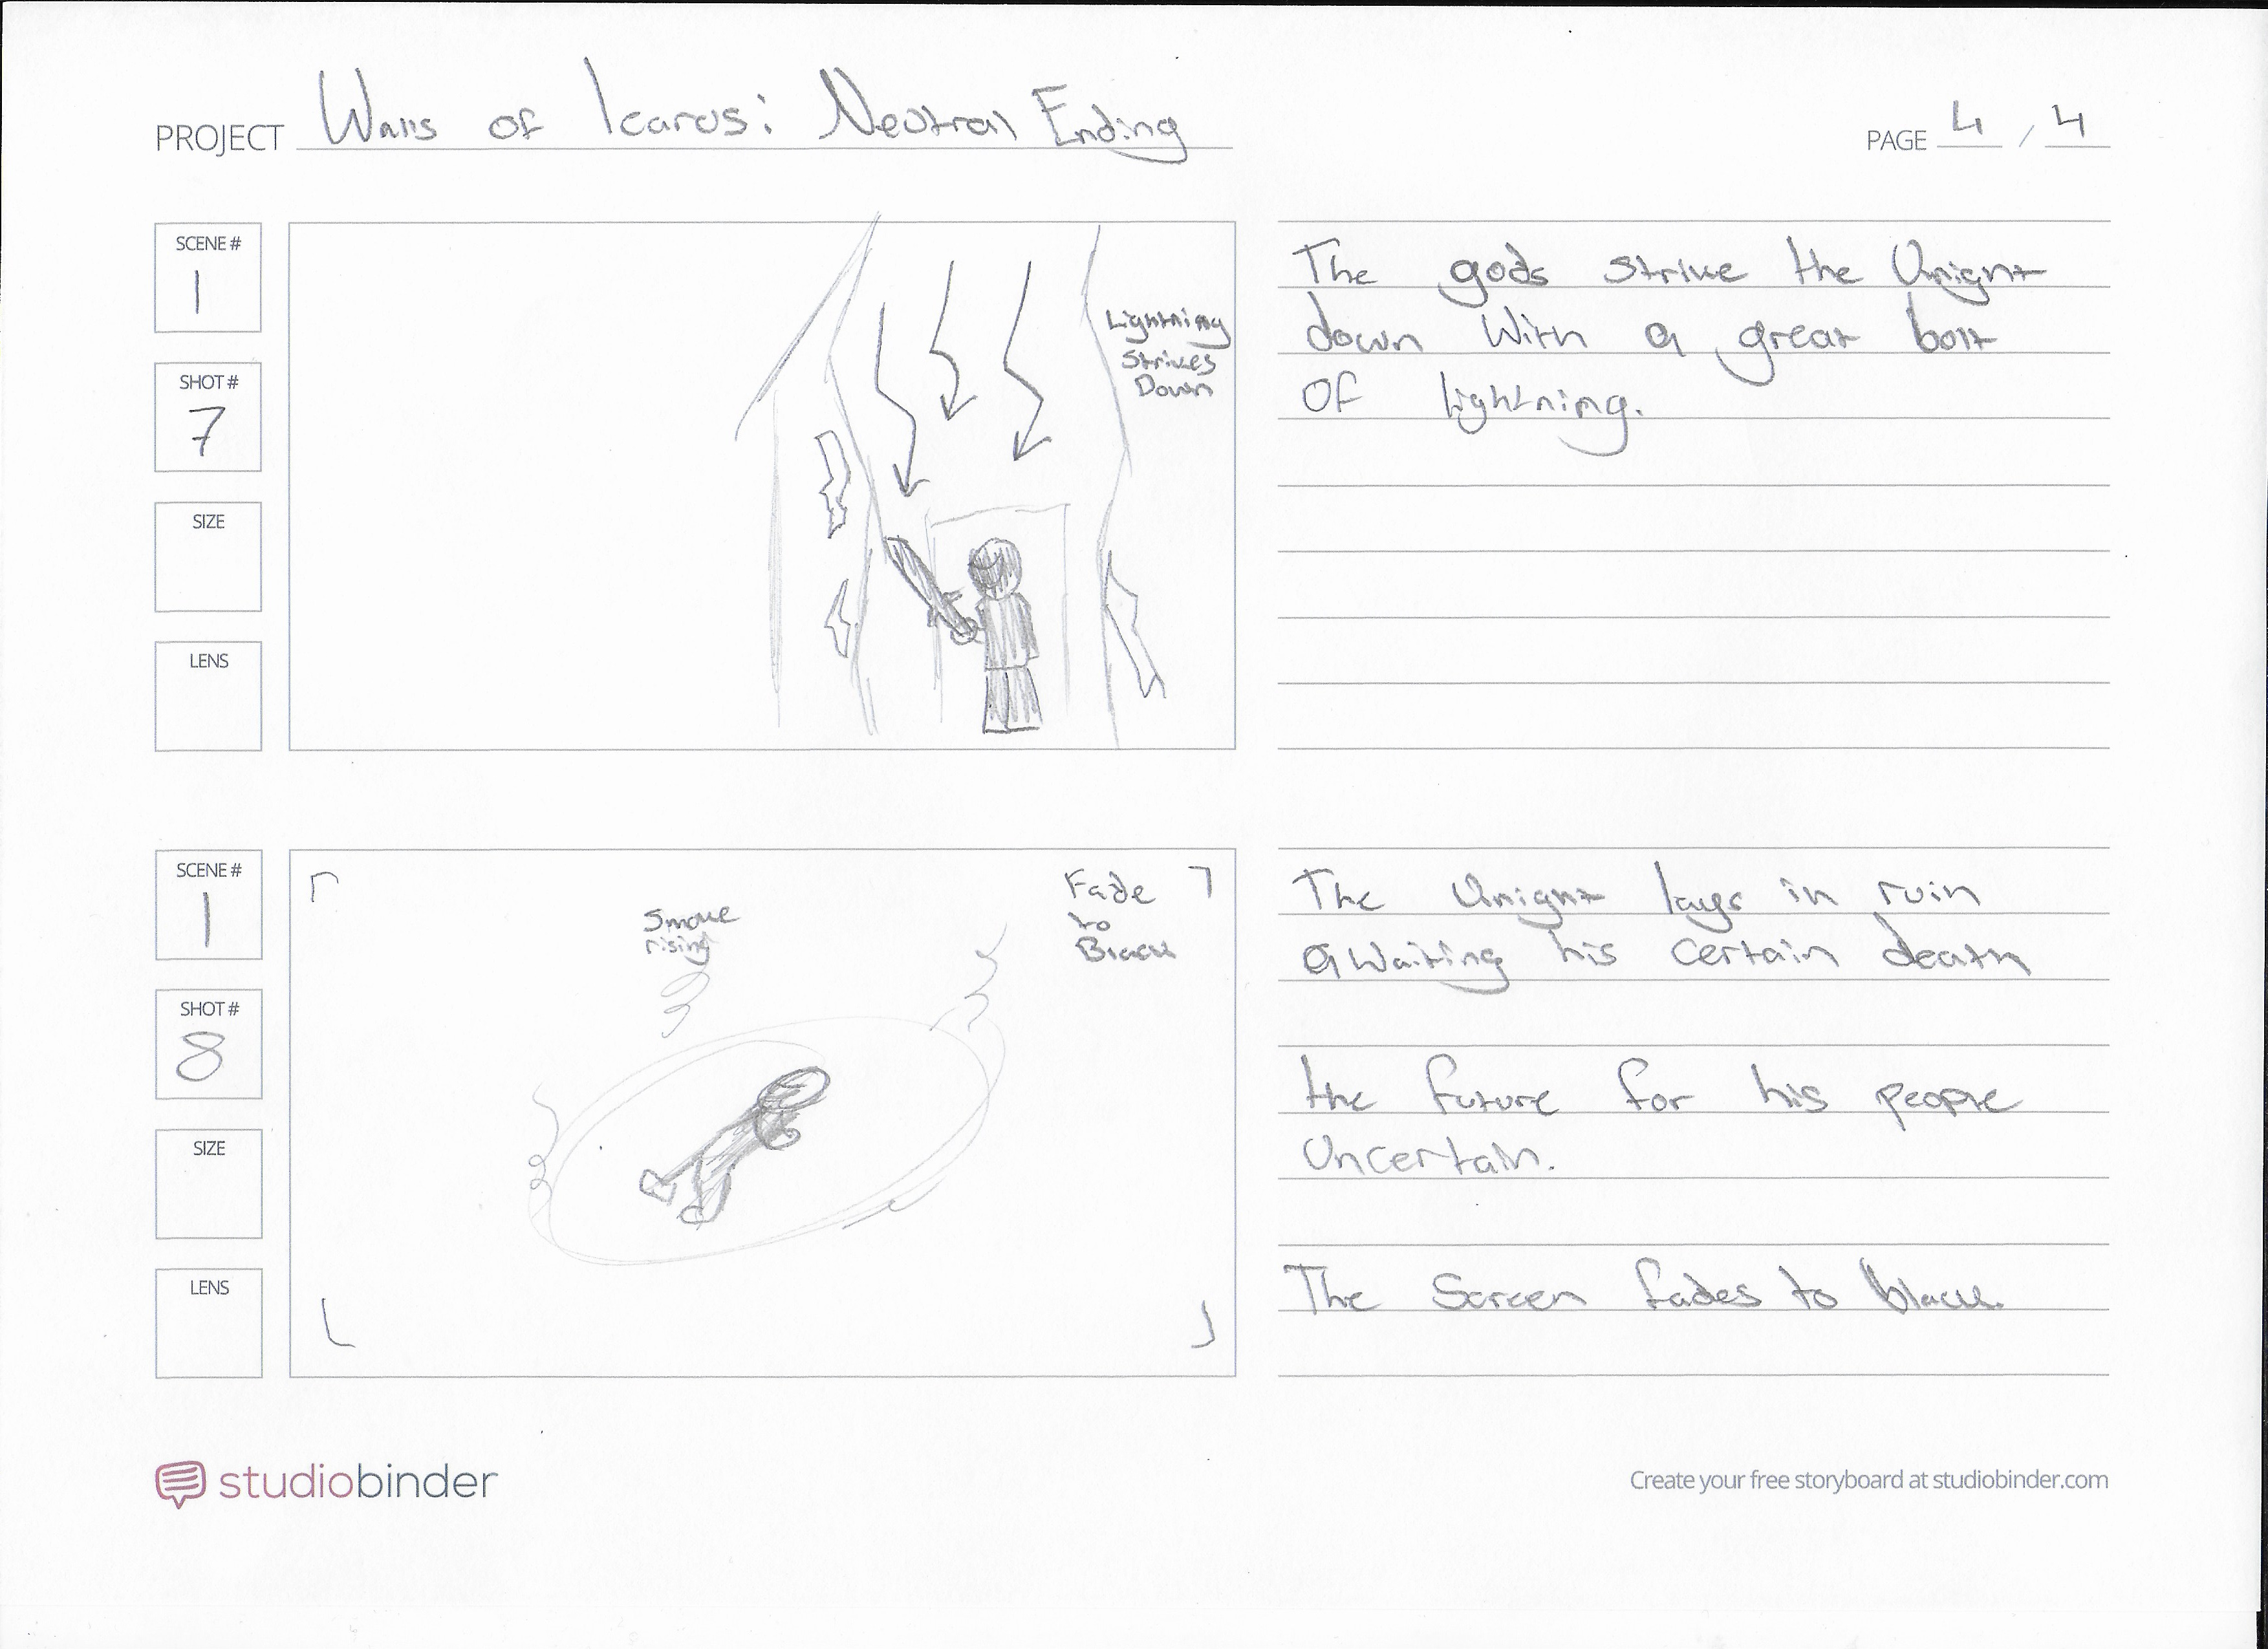 PROJECT Walls of Icarus: Neutral Ending
PAGE 4 / 4
SCENE #
1
SHOT #
7
SIZE
LENS
Lightning
Strikes
Down
The gods strike the Knight
down With a great bolt
Of lightning.
SCENE #
1
SHOT #
8
SIZE
LENS
Smoke
rising
Fade
to
Black
The Knight lays in ruin
awaiting his certain death
the future for his people
Uncertain.
The Screen fades to black.
studiobinder
Create your free storyboard at studiobinder.com